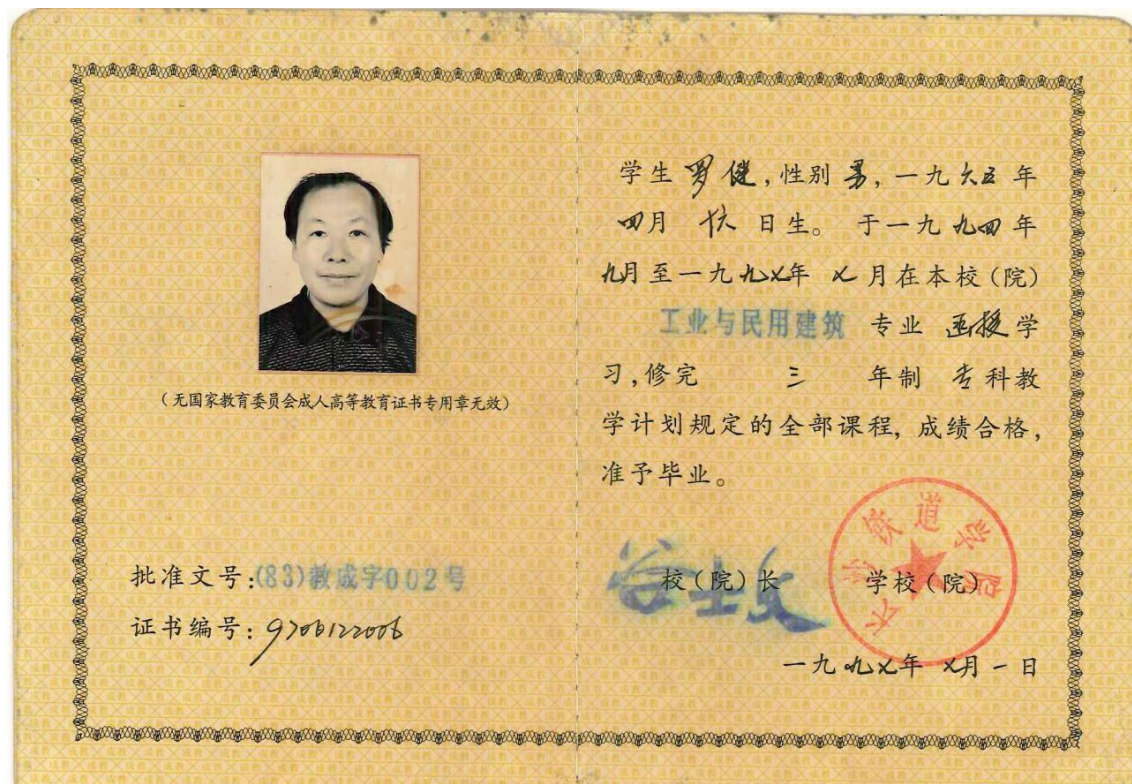 (无国家教育委员会成人高等教育证书专用章无效)
批准文号:(83)教成字002号
证书编号:9706122006
学生 罗健,性别 男,一九六五年
四月 十六 日生。于一九九四年
九月至一九九七年 七月在本校(院)
工业与民用建筑 专业 函授学
习,修完 三 年制 专科教
学计划规定的全部课程,成绩合格,
准予毕业。
校(院)长 谷士文 学校(院)
长沙铁道学院
一九九七年 七月一日